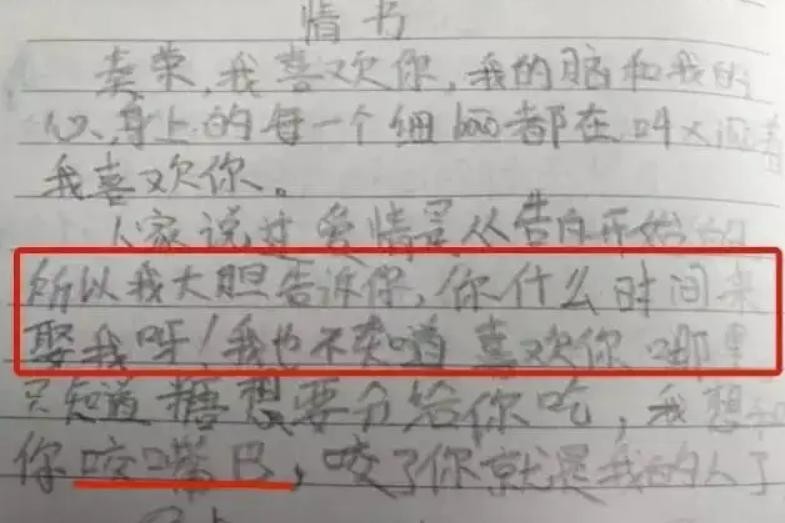 情书
荣,我喜欢你,我的脑和我的
心、身上的每一个细 都在叫
我喜欢你。
人家说过爱情是从告白开始的
所以我大胆告诉你,你什么时间来
娶我呀!我也不知道喜欢你哪里
只知道糖想要分给你吃,我想和
你咬嘴巴,咬了你就是我的人了